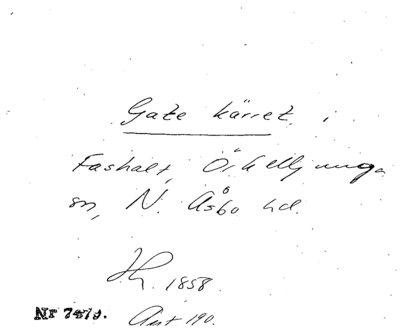 Gate kärret i
Fashalt, Örkelljunga
sn, N. Åsbo hd.
1858.
Nr 7479.
Ant 190.